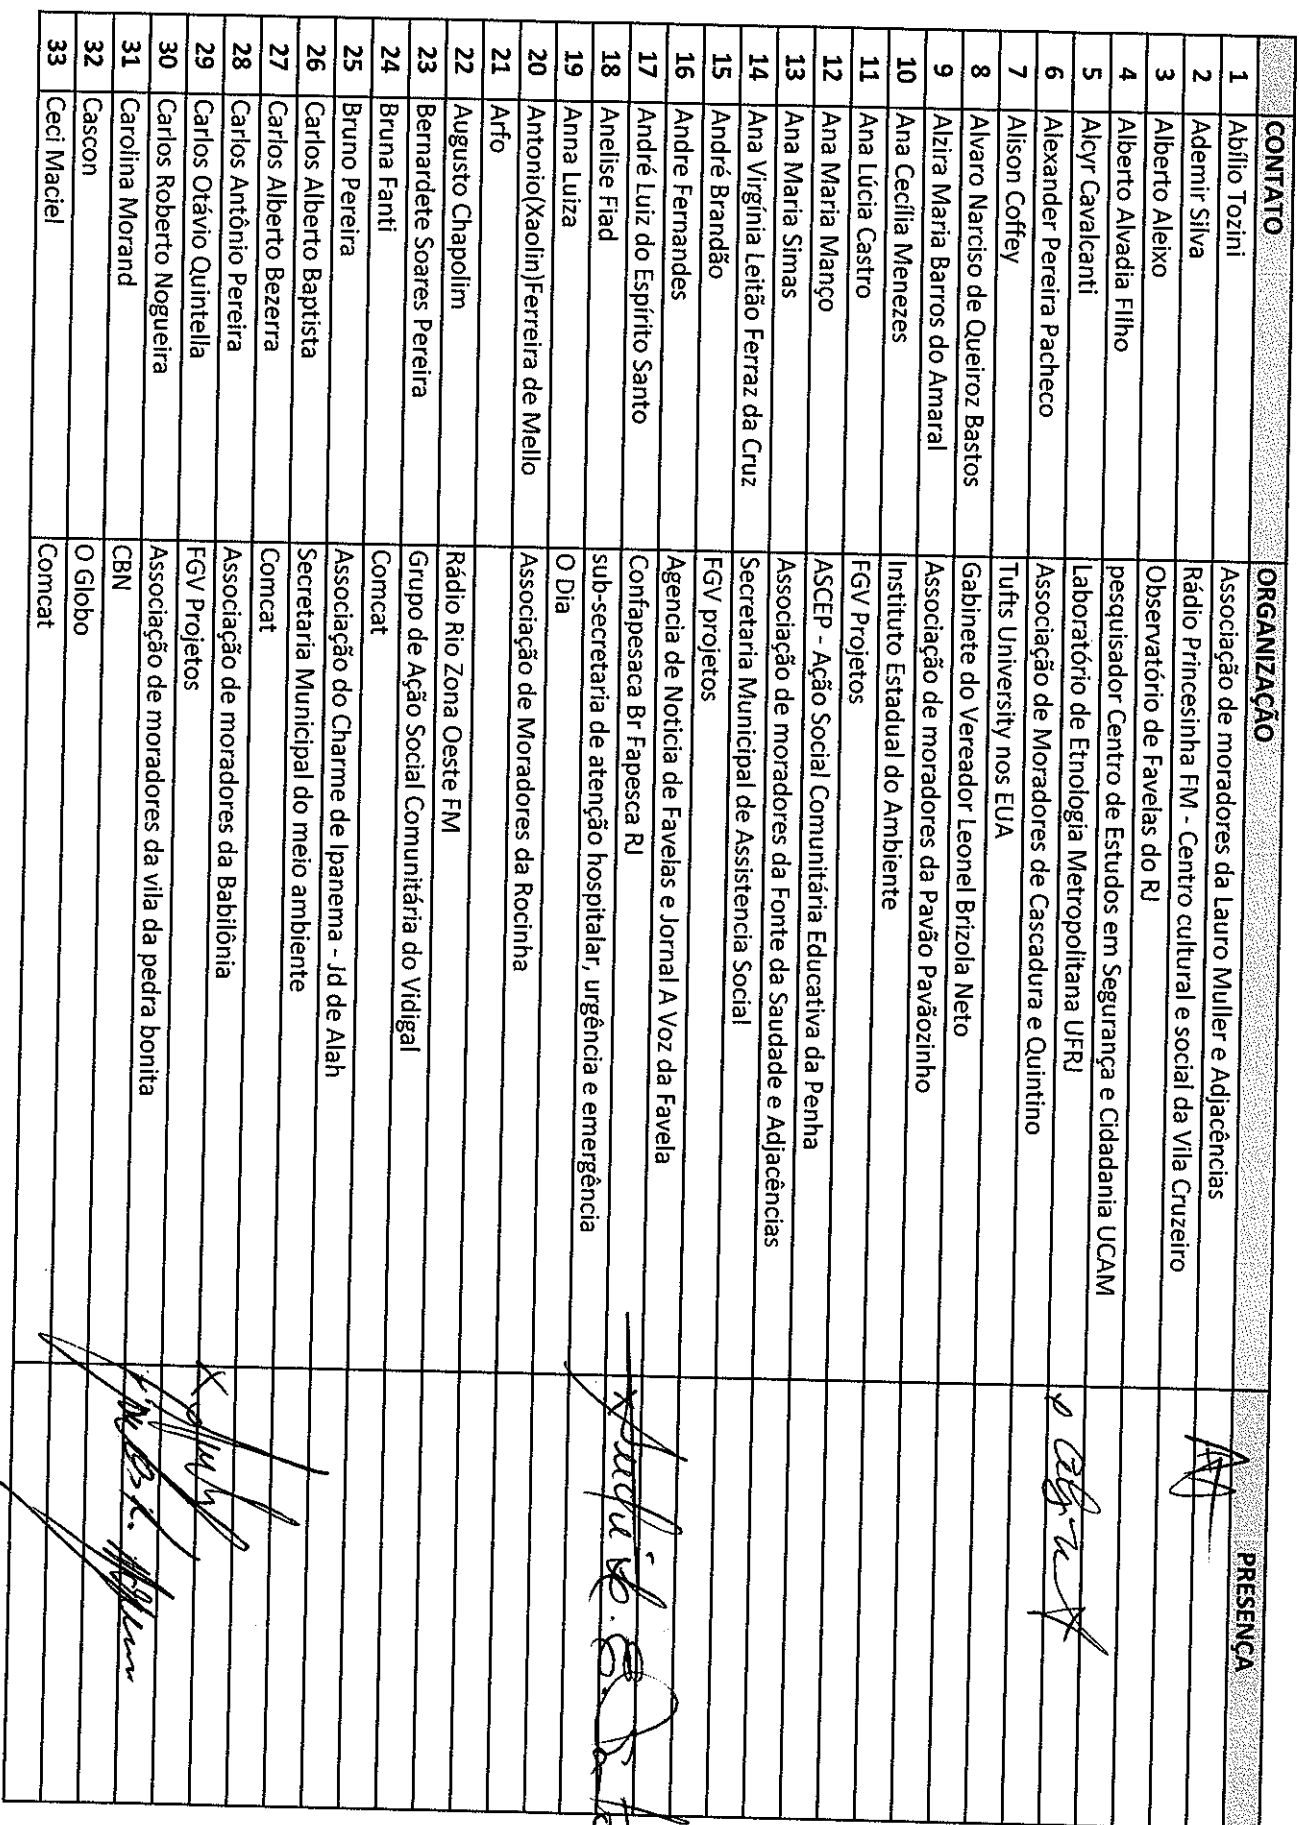 CONTATO ORGANIZAÇÃO PRESENÇA
1 Abílio Tozini Associação de moradores da Lauro Muller e Adjacências
2 Ademir Silva Rádio Princesinha FM - Centro cultural e social da Vila Cruzeiro
3 Alberto Aleixo Observatório de Favelas do RJ
4 Alberto Alvadia FIlho pesquisador Centro de Estudos em Segurança e Cidadania UCAM
5 Alcyr Cavalcanti Laboratório de Etnologia Metropolitana UFRJ
6 Alexander Pereira Pacheco Associação de Moradores de Cascadura e Quintino
7 Alison Coffey Tufts University nos EUA
8 Alvaro Narciso de Queiroz Bastos Gabinete do Vereador Leonel Brizola Neto
9 Alzira Maria Barros do Amaral Associação de moradores da Pavão Pavãozinho
10 Ana Cecília Menezes Instituto Estadual do Ambiente
11 Ana Lúcia Castro FGV Projetos
12 Ana Maria Manço ASCEP - Ação Social Comunitária Educativa da Penha
13 Ana Maria Simas Associação de moradores da Fonte da Saudade e Adjacências
14 Ana Virgínia Leitão Ferraz da Cruz Secretaria Municipal de Assistencia Social
15 André Brandão FGV projetos
16 Andre Fernandes Agencia de Noticia de Favelas e Jornal A Voz da Favela
17 André Luiz do Espírito Santo Confapesaca Br Fapesca RJ
18 Anelise Fiad sub-secretaria de atenção hospitalar, urgência e emergência
19 Anna Luiza O Dia
20 Antonio(Xaolin)Ferreira de Mello Associação de Moradores da Rocinha
21 Arfo
22 Augusto Chapolim Rádio Rio Zona Oeste FM
23 Bernardete Soares Pereira Grupo de Ação Social Comunitária do Vidigal
24 Bruna Fanti Comcat
25 Bruno Pereira Associação do Charme de Ipanema - Jd de Alah
26 Carlos Alberto Baptista Secretaria Municipal do meio ambiente
27 Carlos Alberto Bezerra Comcat
28 Carlos Antônio Pereira Associação de moradores da Babilônia
29 Carlos Otávio Quintella FGV Projetos
30 Carlos Roberto Nogueira Associação de moradores da vila da pedra bonita
31 Carolina Morand CBN
32 Cascon O Globo
33 Ceci Maciel Comcat